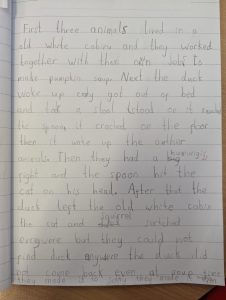 First three animals lived in a
old white cabin and they worked
together with their own jobs to
make pumpkin soup. Next the duck
woke up early got out of bed
and tok a stool stood on it
the spoon it cracled on the floor
then it woke up the
animals. Then they had a
fight and the spoon hit the
cat on his head. After that the
duck left the old white cabin
the cat and squirrel serched
evrywere but they could not
find duck anywere the duck did
not come back even at soup time
they made